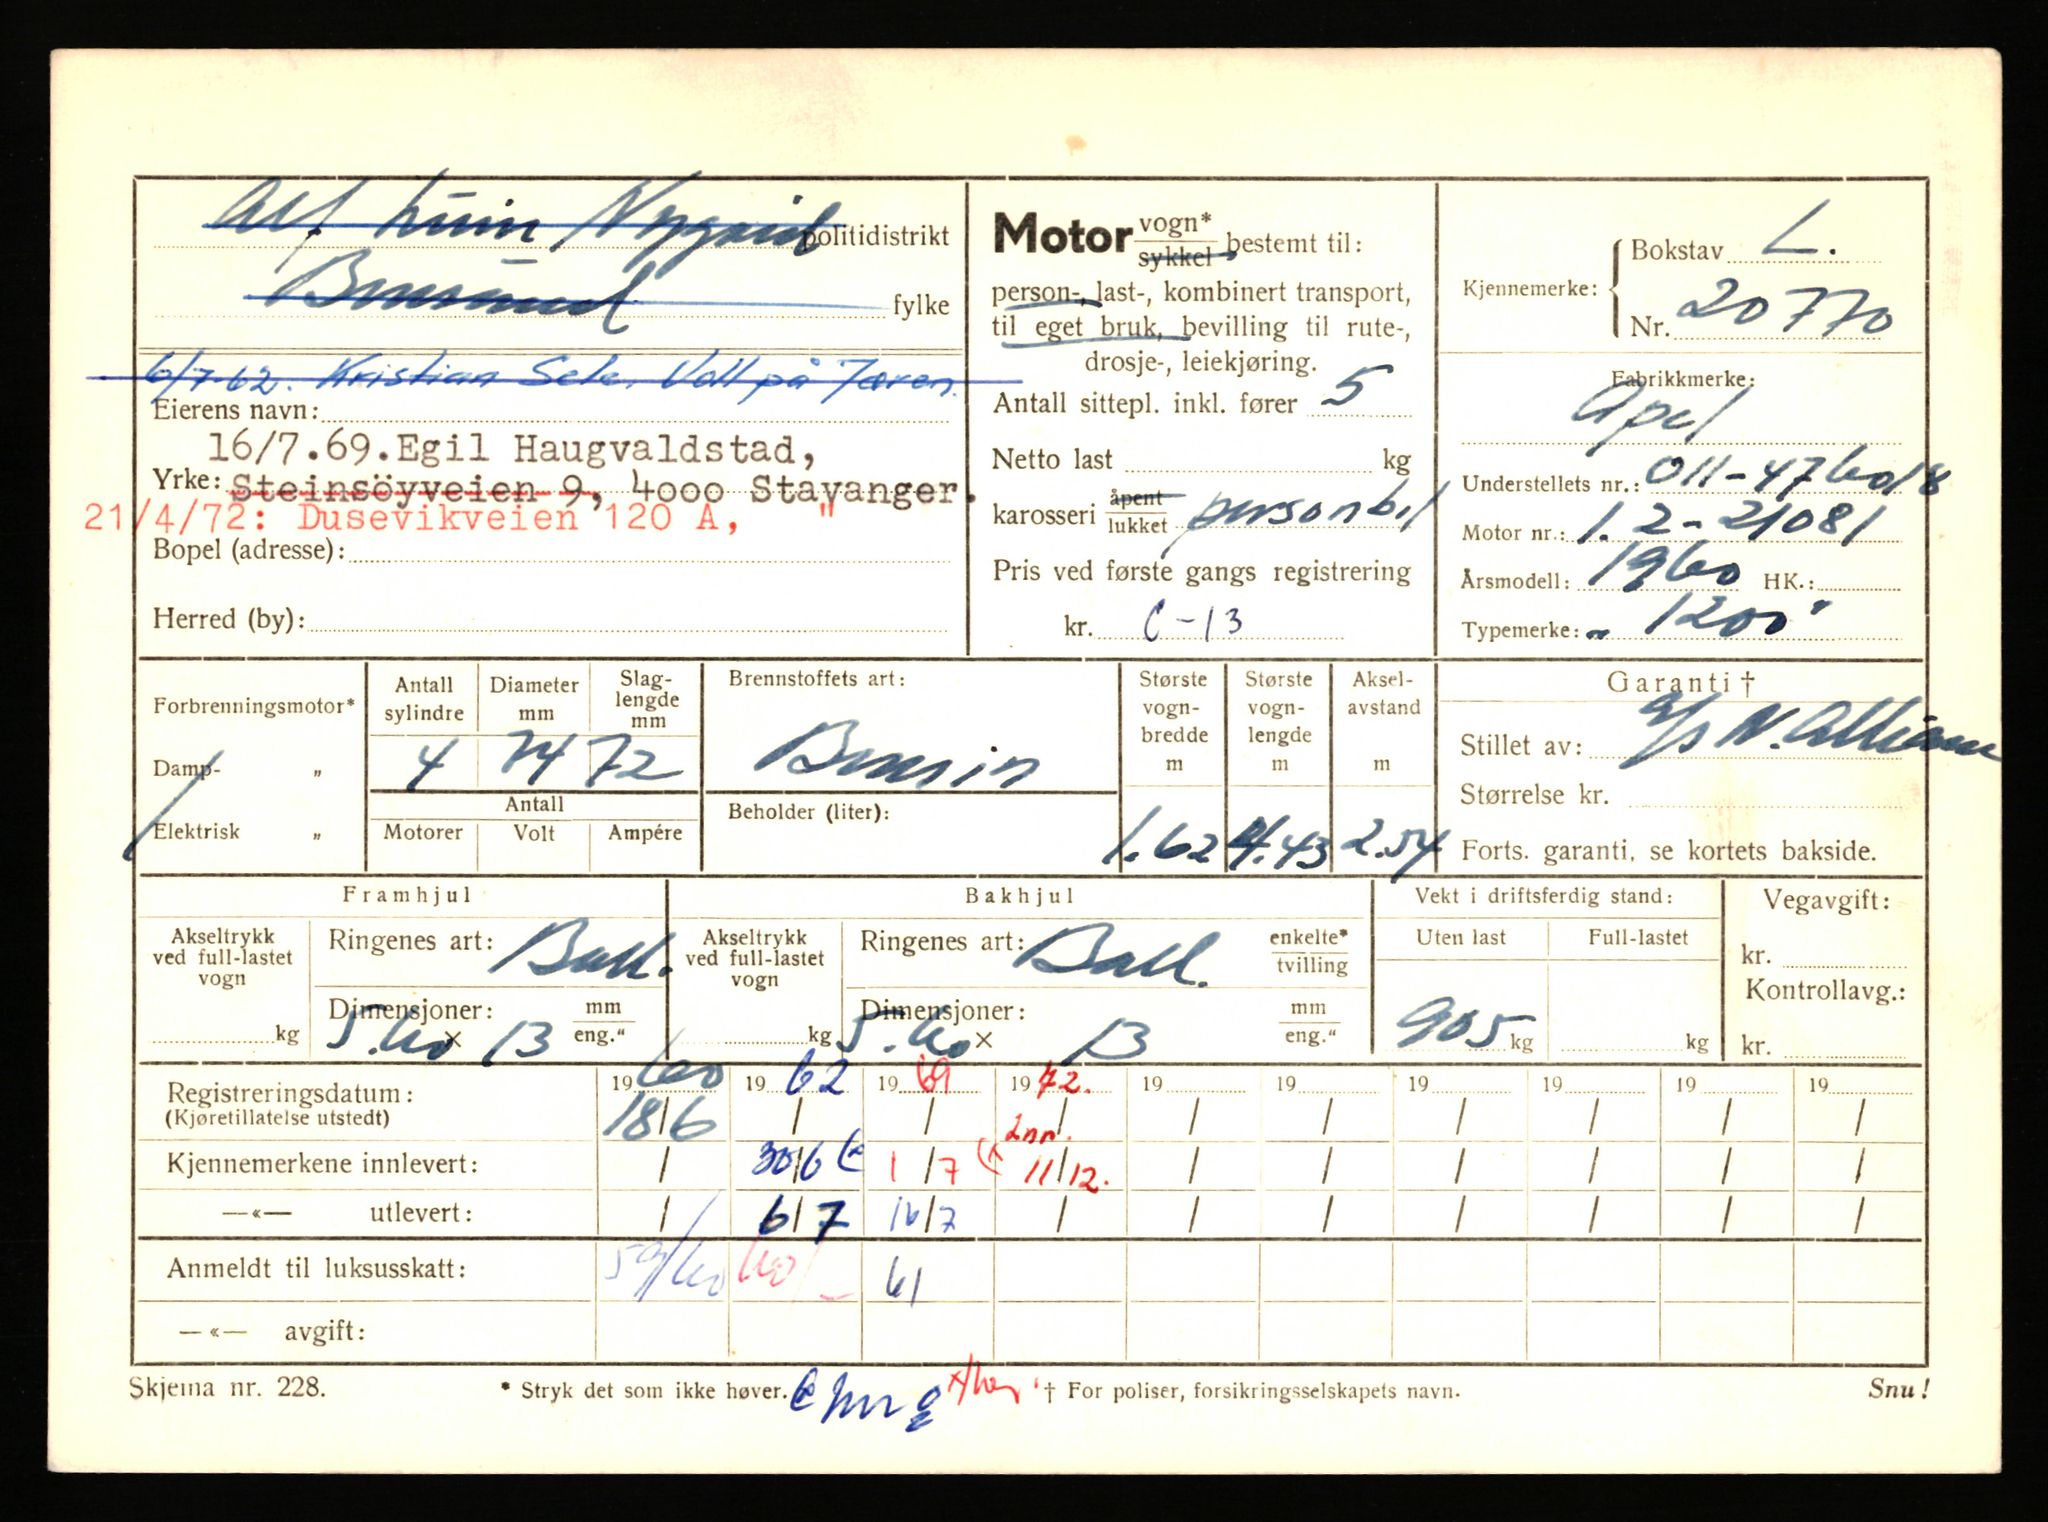 Alf politidistrikt
fylke
6/7-62. Kristian Sele, Voll på Jæren.
Eierens navn:
16/7.69. Egil Haugvaldstad,
Yrke: Steinsöyveien 9, 4000 Stavanger.
21/4/72: Dusevikveien 120 A, "
Bopel (adresse):
Herred (by):
Motor vogn* sykkel bestemt til:
person-, last-, kombinert transport,
til eget bruk, bevilling til rute-,
drosje-, leiekjøring.
Antall sittepl. inkl. fører 5
Netto last kg
karosseri åpent lukket personbil
Pris ved første gangs registrering
kr. C-13
Kjennemerke: Bokstav L.
Nr. 20770
Fabrikkmerke:
Opel
Understellets nr.: 011-476018
Motor nr.: 1.2-21081
Årsmodell: 1960 HK.:
Typemerke: "1200"
Forbrenningsmotor*
Damp- "
Elektrisk "
Antall sylindre Diameter mm Slaglengde mm
4 74 72
Antall
Motorer Volt Ampére
Brennstoffets art:
Bensin
Beholder (liter):
Største vognbredde m Største vognlengde m Akselavstand m
1.62 4.43 2.54
Garanti †
Stillet av:
Størrelse kr.
Forts. garanti, se kortets bakside.
Framhjul
Akseltrykk ved full-lastet vogn kg
Ringenes art: Ball.
Dimensjoner: mm
5.60 x 13 eng."
Bakhjul
Akseltrykk ved full-lastet vogn kg
Ringenes art: Ball. enkelte* tvilling
Dimensjoner: mm
5.60 x 13 eng."
Vekt i driftsferdig stand:
Uten last Full-lastet
905 kg kg
Vegavgift:
kr.
Kontrollavg.:
kr.
Registreringsdatum: 1960 1962 1969 1972. 19 19 19 19 19 19
(Kjøretillatelse utstedt) 18/6 / / / / / / / / /
Kjennemerkene innlevert: / 30/6 1/7 2nr. 11/12. / / / / / /
—«— utlevert: / 6/7 16/7 / / / / / / /
Anmeldt til luksusskatt: 59/60 60/ 61
—«— avgift:
Skjema nr. 228. * Stryk det som ikke høver. † For poliser, forsikringsselskapets navn. Snu!